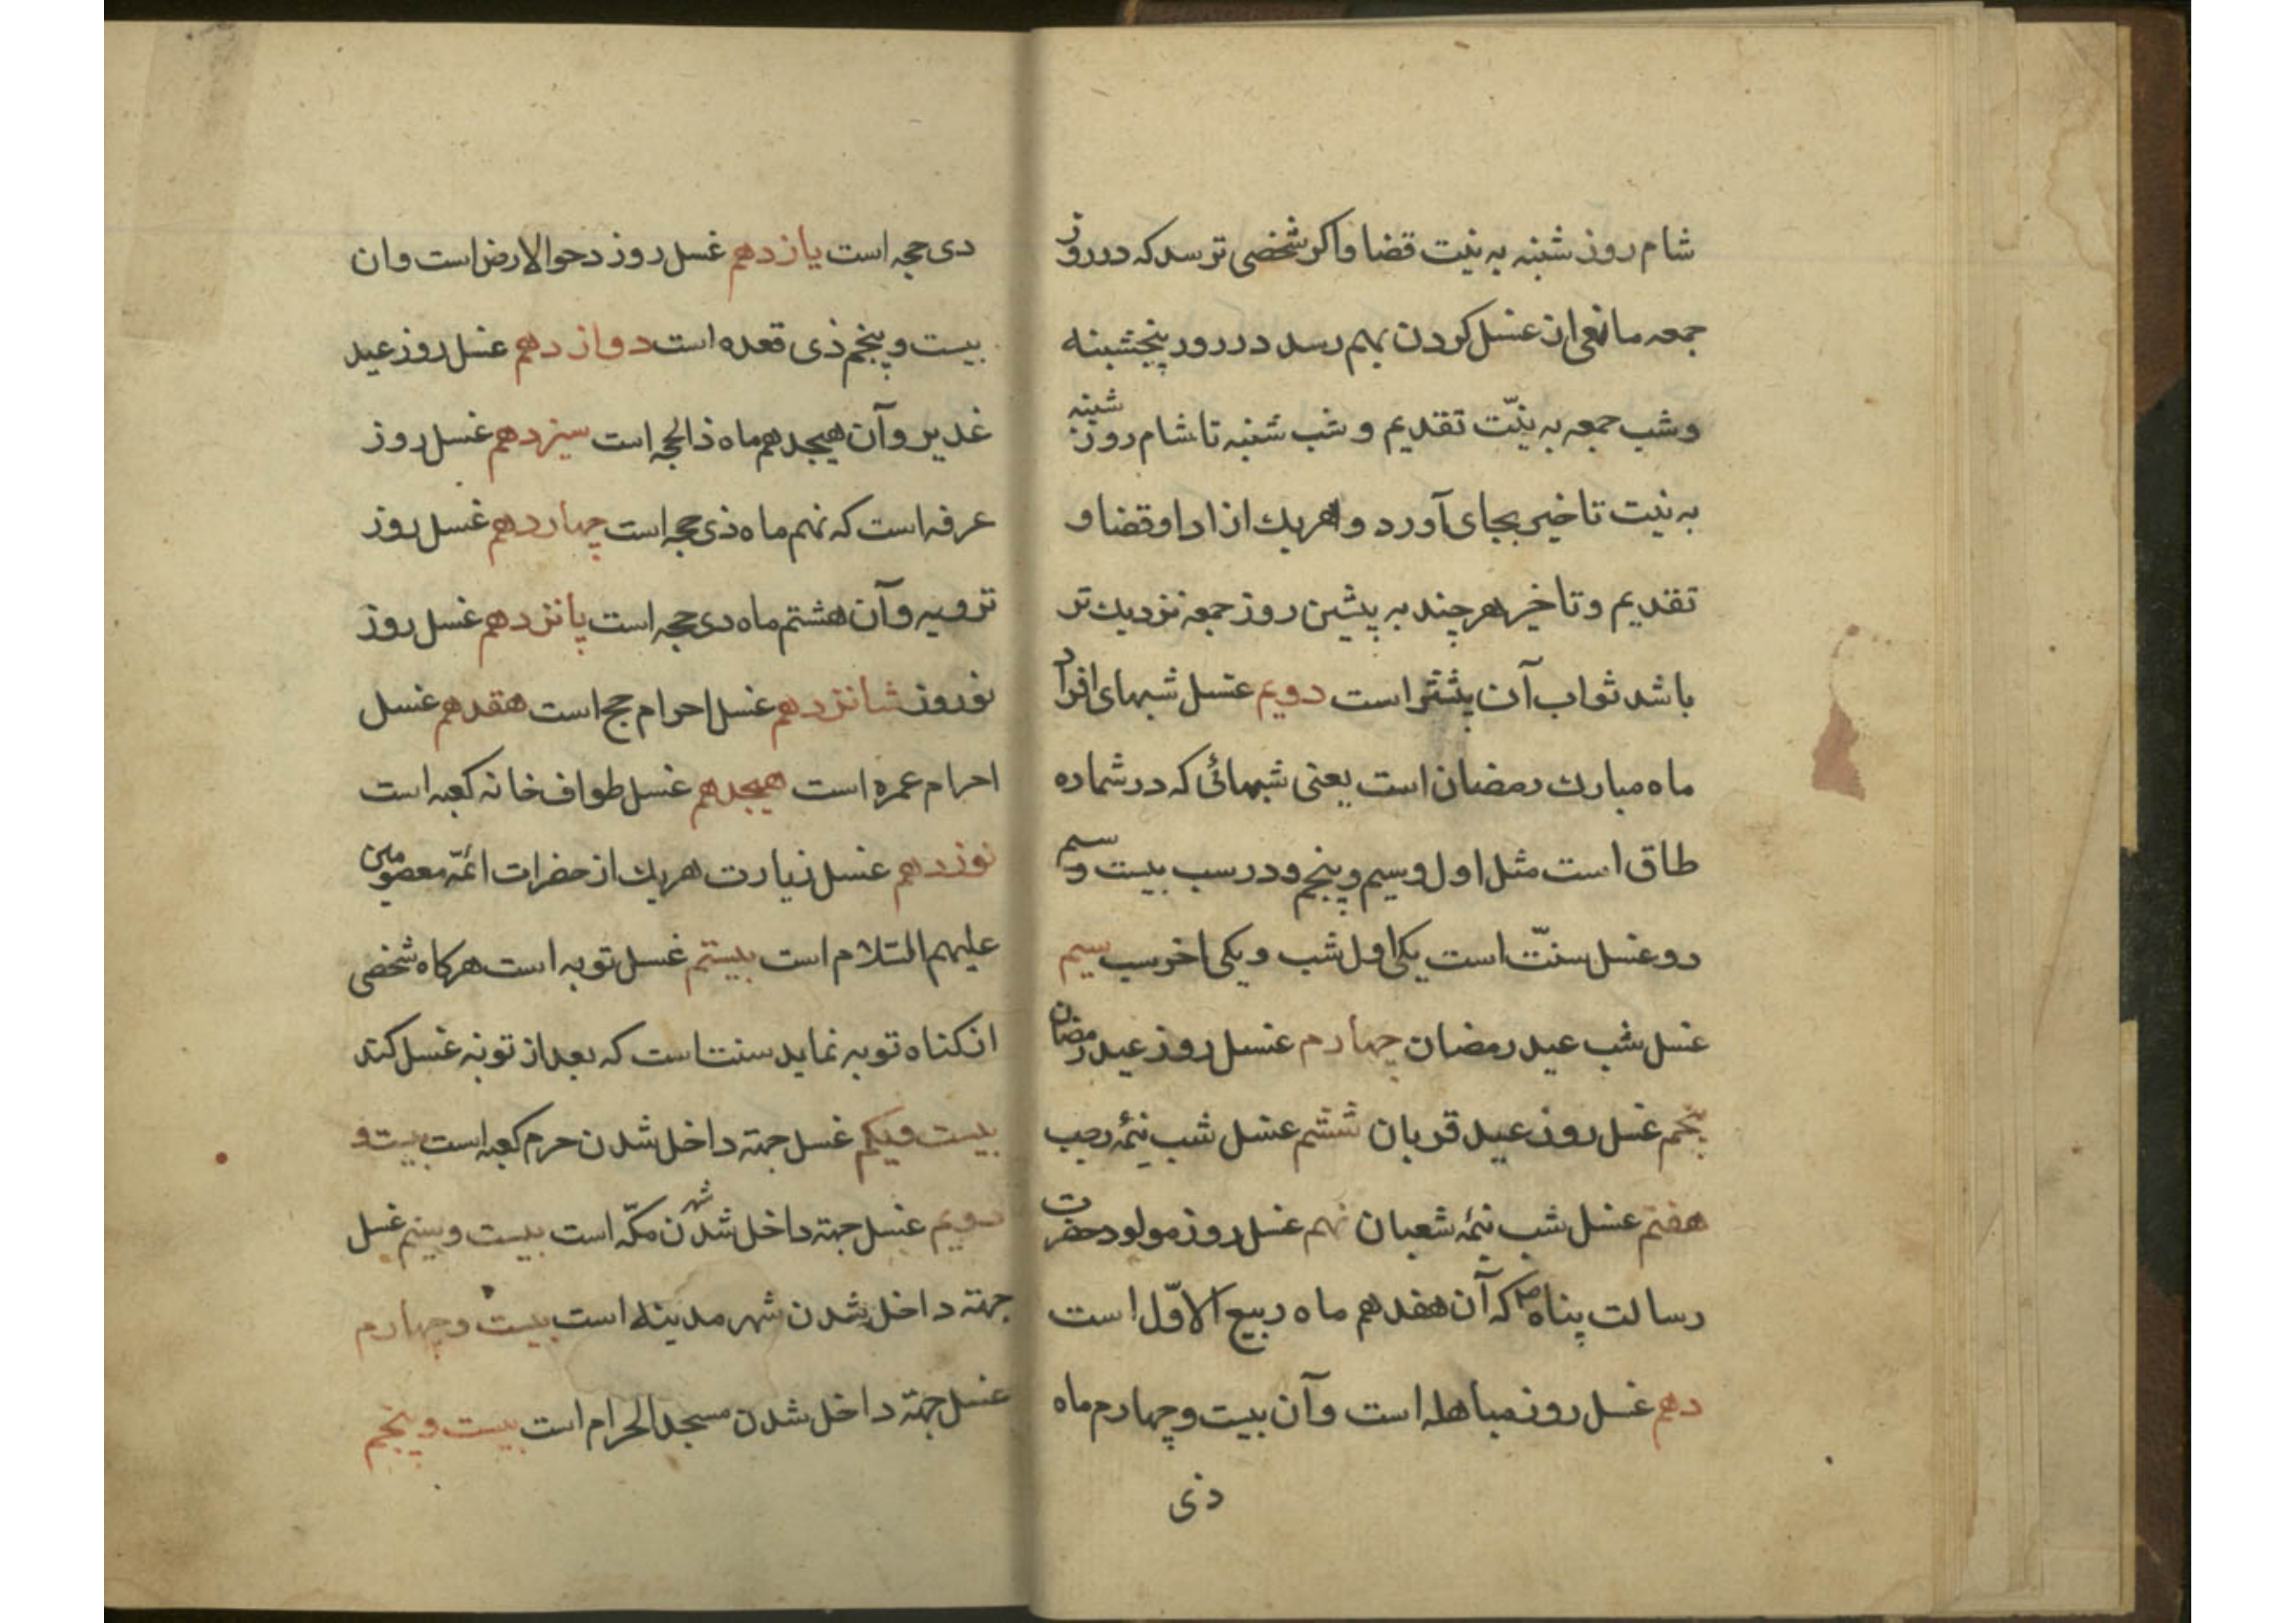 شام روز شنبه به نیت قضا واکر شخصی ترسد که در روز
جمعه مانعی از غسل کردن بهم رسد در روز پنجشبنه
وشب جمعه به نیّت تقدیم و شب شنبه تا شام روز شنبه
به نیت تاخیر بجای آورد و هریك از ادا وقضا و
تقدیم وتاخیر هرچند به پیشین روز جمعه نزدیك تر
باشد ثواب آن بیشتر است دویم غسل شبهای افراد
ماه مبارك رمضان است یعنی شبهائی که در شماره
طاق است مثل اول وسیم وپنجم ودر سب بیست وسیم
دو غسل سنّت است یکی اول شب ویکی اخر سب سیم
غسل شب عید رمضان چهارم غسل روز عید رمضان
پنجم غسل روز عید قربان ششم غسل شب نیمۀ رجب
هفتم غسل شب نیمۀ شعبان نهم غسل روز مولود حضرت
رسالت پناه ص که آن هفدهم ماه ربیع الاوّل است
دهم غسل روز مباهله است وآن بیست وچهارم ماه
ذی
دی حجه است یازدهم غسل روز دحوالارض است وان
بیست وپنجم ذی قعده است دوازدهم غسل روز عید
غدیر وآن هیجدهم ماه ذالحجه است سیزدهم غسل روز
عرفه است که نهم ماه ذی حجه است چهاردهم غسل روز
ترویه وآن هشتم ماه دی حجه است پانزدهم غسل روز
نوروز شانزدهم غسل احرام حج است هقدهم غسل
احرام عمره است هیجدهم غسل طواف خانه کعبه است
نوزدهم غسل زیارت هریك از حضرات ائمّه معصومین
علیهم السّلام است بیستم غسل توبه است هرکاه شخصی
از کناه توبه نماید سنت است که بعد از توبه غسل کند
بیست ویکم غسل جهتة داخل شدن حرم کعبه است بیست و
دویم غسل جهتة داخل شدن شهر مکّه است بیست وسیم غسل
جهتة داخل شدن شهر مدینه است بیست وچهارم
غسل جهتة داخل شدن مسجدالحرام است بیست وپنجم